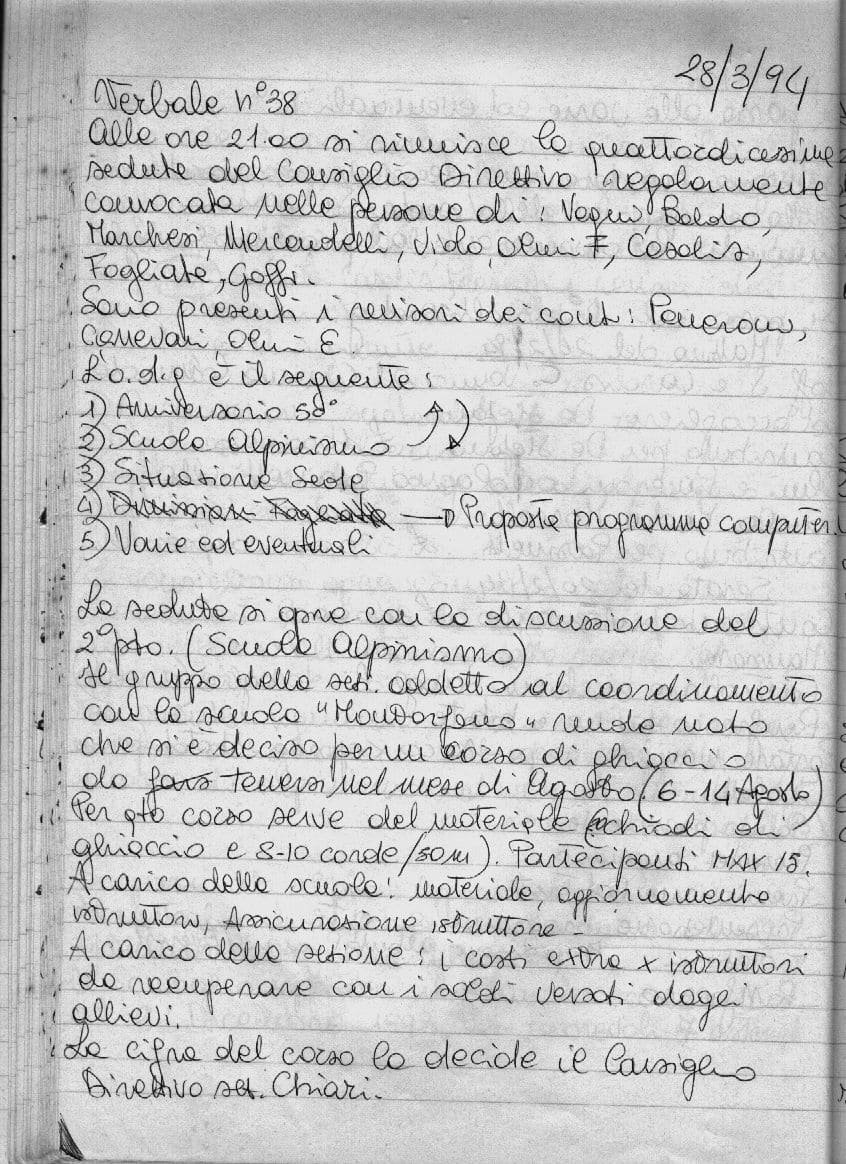 28/3/94
Verbale n°38
Alle ore 21.00 si riunisce la quattordicesima
seduta del Consiglio Direttivo regolarmente
convocata nelle persone di: Vequi, Baldo,
Marchesi, Mercandelli, Vido, Olmi F, Casalis,
Fogliata, Goffi.
Sono presenti i revisori dei cont:
Canevari, Olmi E
L'o.d.g è il seguente:
1) Anniversario 50°
2) Scuola Alpinismo
3) Situazione Sede
4) → Proposta programma computer.
5) Varie ed eventuali
La seduta si apre con la discussione del
2° pto. (Scuola Alpinismo)
Il gruppo della sez. addetto al coordinamento
con la scuola "Montorfano" rende noto
che si è deciso per un corso di ghiaccio
da tenersi nel mese di Agosto (6-14 Agosto)
Per qto corso serve del materiale (chiodi di
ghiaccio e 8-10 corde/50m). Partecipanti MAX 15.
A carico della scuola: materiale, aggiornamento
istruttori, Assicurazione istruttore -
A carico della sezione: i costi extra x istruttori
da recuperare con i soldi versati dagli
allievi.
La cifra del corso la decide il Consiglio
Direttivo sez. Chiari.